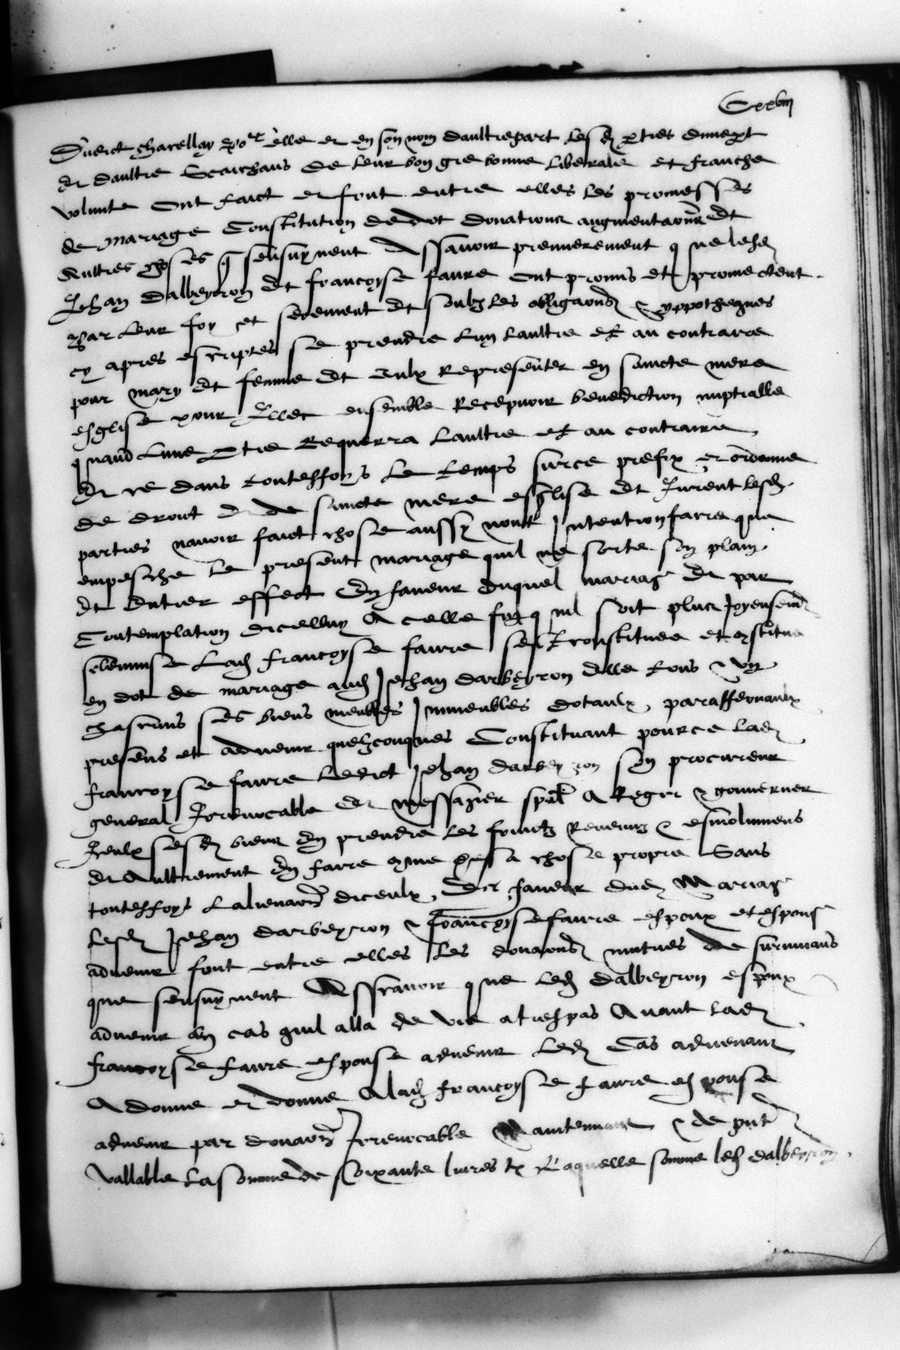 Duict Charellay po.r elle et en son nom daultrepart lesd parties
et daultre Scaichans de leur bon gre bonne liberalite et franche
volunte ont faict et font entre elles les promesses
de mariage Constitution de dot donations augmentaons et
aultres choses q sensuyvent Assavoir premierement que lesd
Jehan Dalbeyron et francoyse faure ont promis et promectent
par leur foy et serement et soubz les obligaons & yppotheques
cy apres escriptes se prendre lun laultre et au contraire
pour mary et femme et Iulx representer en saincte mere
esglise pour Illec ensemble recepvoir benediction nuptialle
quand lune ptie requerra laultre et au contraire
et ce dans toutesfoys le temps sur ce prefix et ordonne
de droict et de saincte mere esglise et Jurent lesd
parties navoir faict chose aussy nont Intention faire que
empesche le present mariage quil ne sorte son plain
et entier effect En faveur duquel mariage et par
Contemplation dicelluy A celle fin quil soit plus Joyeusemt
solempnise Lad francoyse faure sest constituee et constitue
en dot de mariage aud Jehan darbeyron elle tous & ung
chascuns ses biens meubles Immeubles dotaulx paraffernaulx
presens et advenir quelzconques Constituant pource lad
francoyse faure ledict Jehan darbeyron son procureur
general Irrevocable et messagier spal A Reger & gouverner
Iceulx sesd biens En prendre les fruictz revenuz & esmolumens
et Aultrement En faire come de sa chose propre Sans
toutesfoys lalienaon diceulx Et faveur dud Mariage
lesd Jehan darbeyron & francoyse faure espoux et espouse
advenir font entre elles les donaons mutues de survivans
que sensuyvent Assavoir que led dalbeyron espoux
advenir en cas quil alla de vie a trespas Avant lad
francoyse faure espouse advenir Led Cas advenant
A donne et donne A lad francoyse faure espouse
advenir par donaon Irrevocable Maintenant & de pnt
vallable la somme de soixante livres tz Laquelle somme led dalbeyron